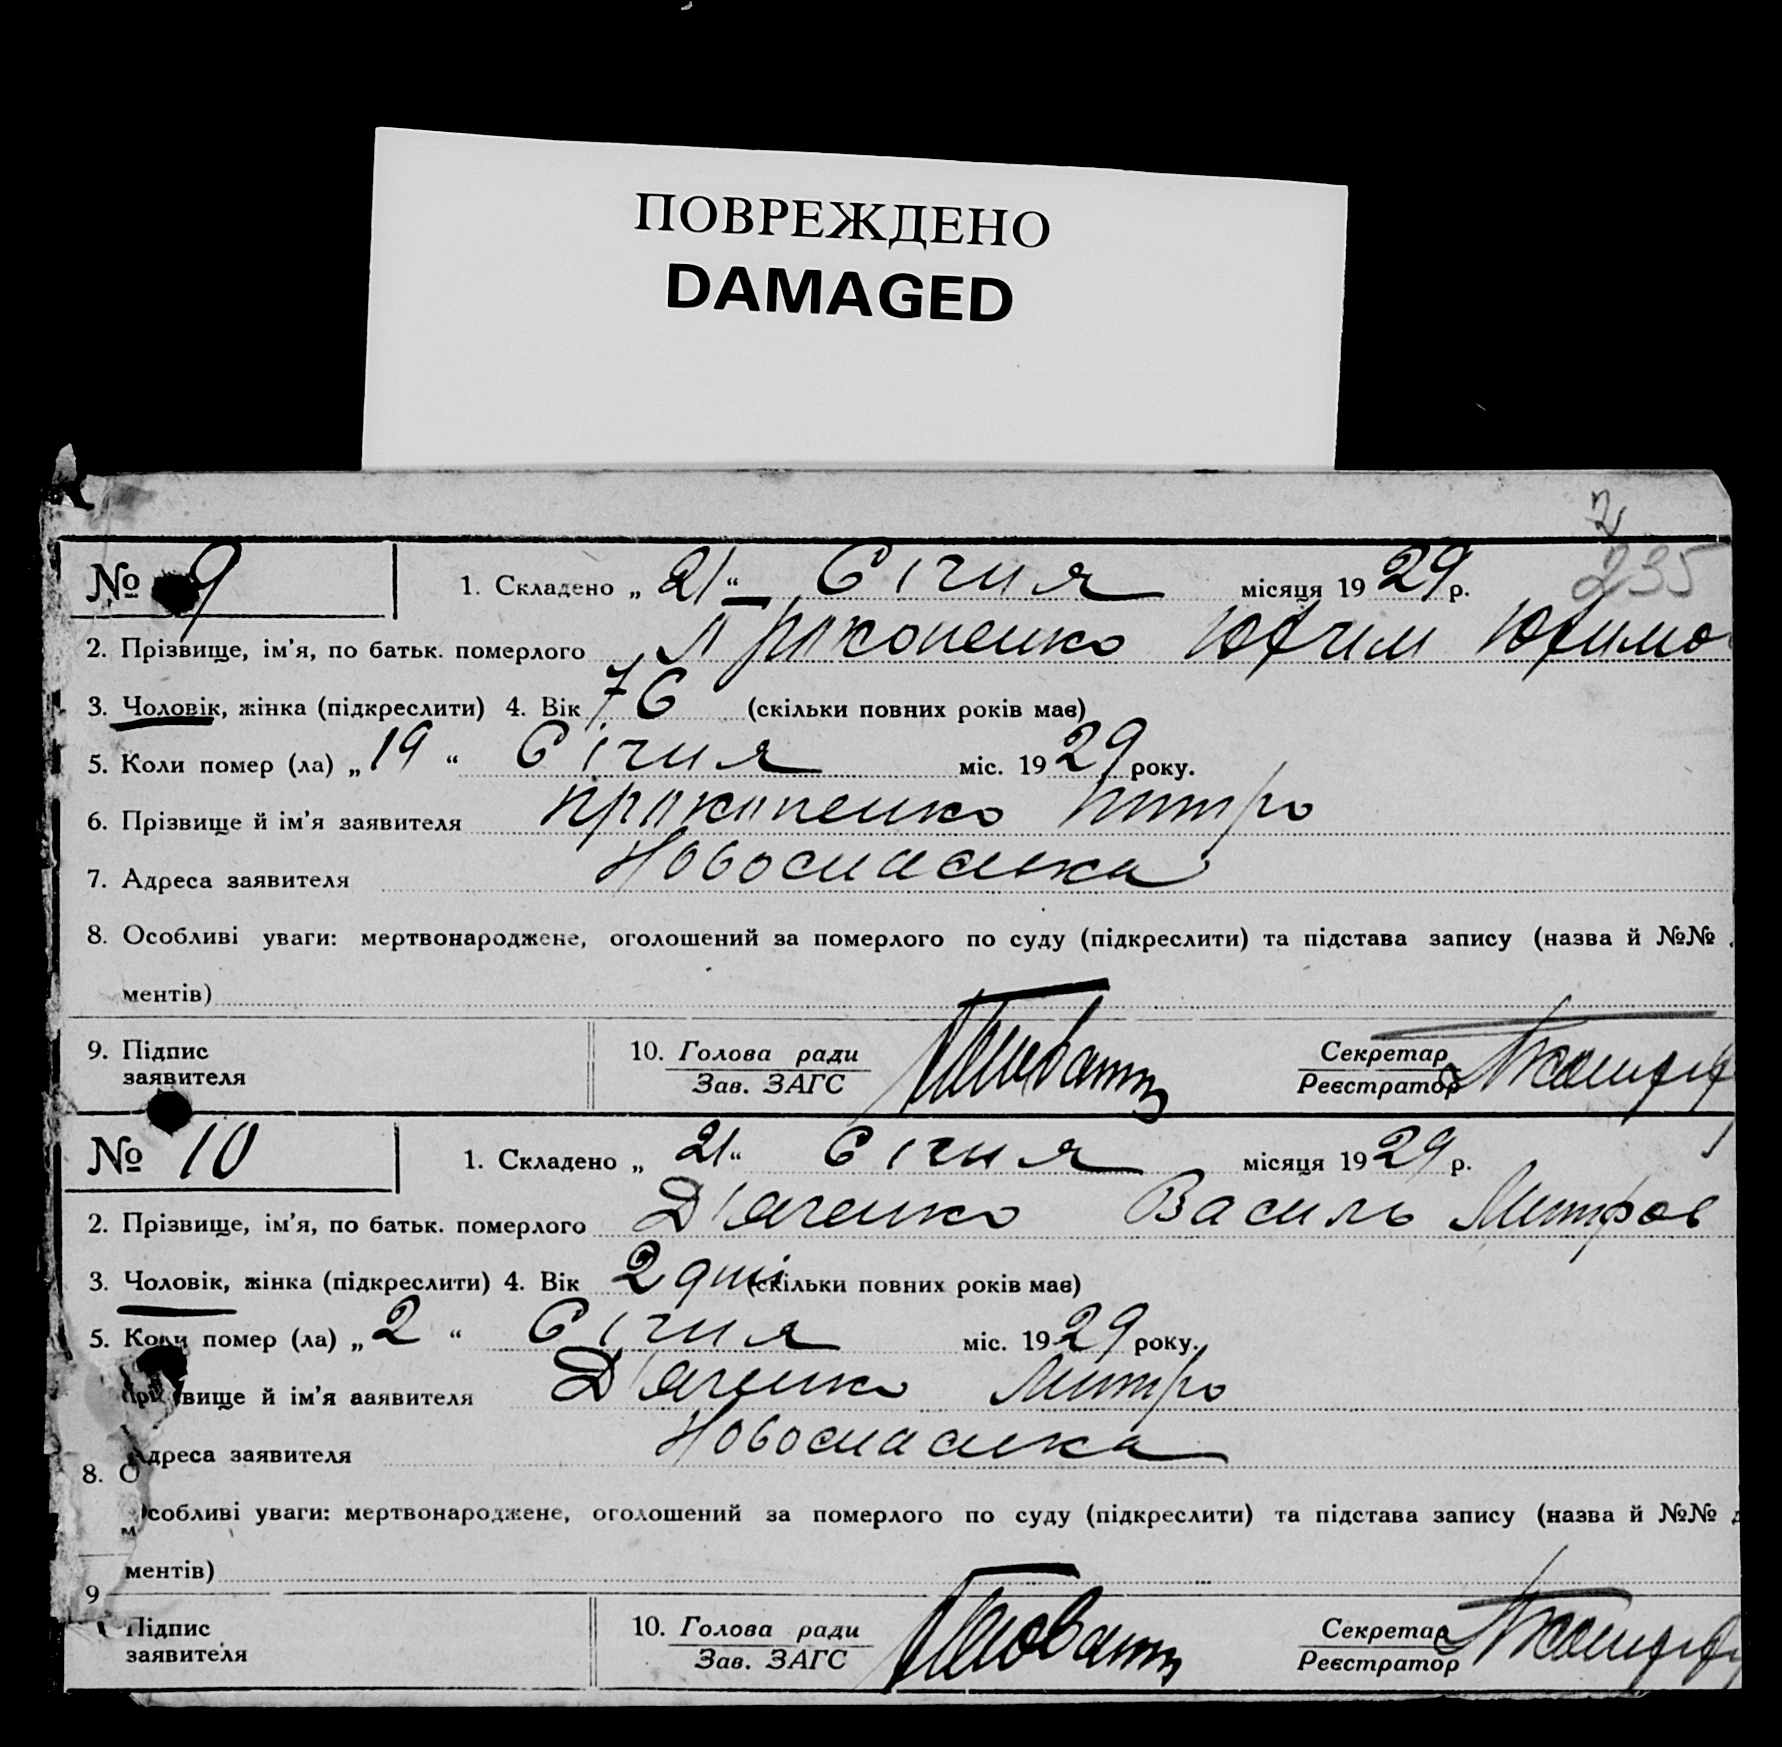 ПОВРЕЖДЕНО
DAMAGED
235
№ 9
1. Складено „ 21 “ Січня місяця 19 29 р.
2. Прізвище, ім'я, по батьк. померлого Прокопенко Юхим Юхимо
3. Чоловік, жінка (підкреслити) 4. Вік 76 (скільки повних років має)
5. Коли помер (ла) „ 19 “ Січня міс. 19 29 року.
6. Прізвище й ім'я заявителя Прокопенко
7. Адреса заявителя Новоспаська
8. Особливі уваги: мертвонароджене, оголошений за померлого по суду (підкреслити) та підстава запису (назва й №№
ментів)
9. Підпис
заявителя
10. Голова ради
Зав. ЗАГС
Секретар
Реєстратор
№ 10
1. Складено „ 21 “ Січня місяця 19 29 р.
2. Прізвище, ім'я, по батьк. померлого Д'яченко Василь Митров
3. Чоловік, жінка (підкреслити) 4. Вік 2 дні (скільки повних років має)
5. Коли помер (ла) „ 2 “ Січня міс. 19 29 року.
вище й ім'я заявителя Д'яченко Митро
Адреса заявителя Новоспаська
8. О
собливі уваги: мертвонароджене, оголошений за померлого по суду (підкреслити) та підстава запису (назва й №№ д
м
ментів)
9
Підпис
заявителя
10. Голова ради
Зав. ЗАГС
Секретар
Реєстратор